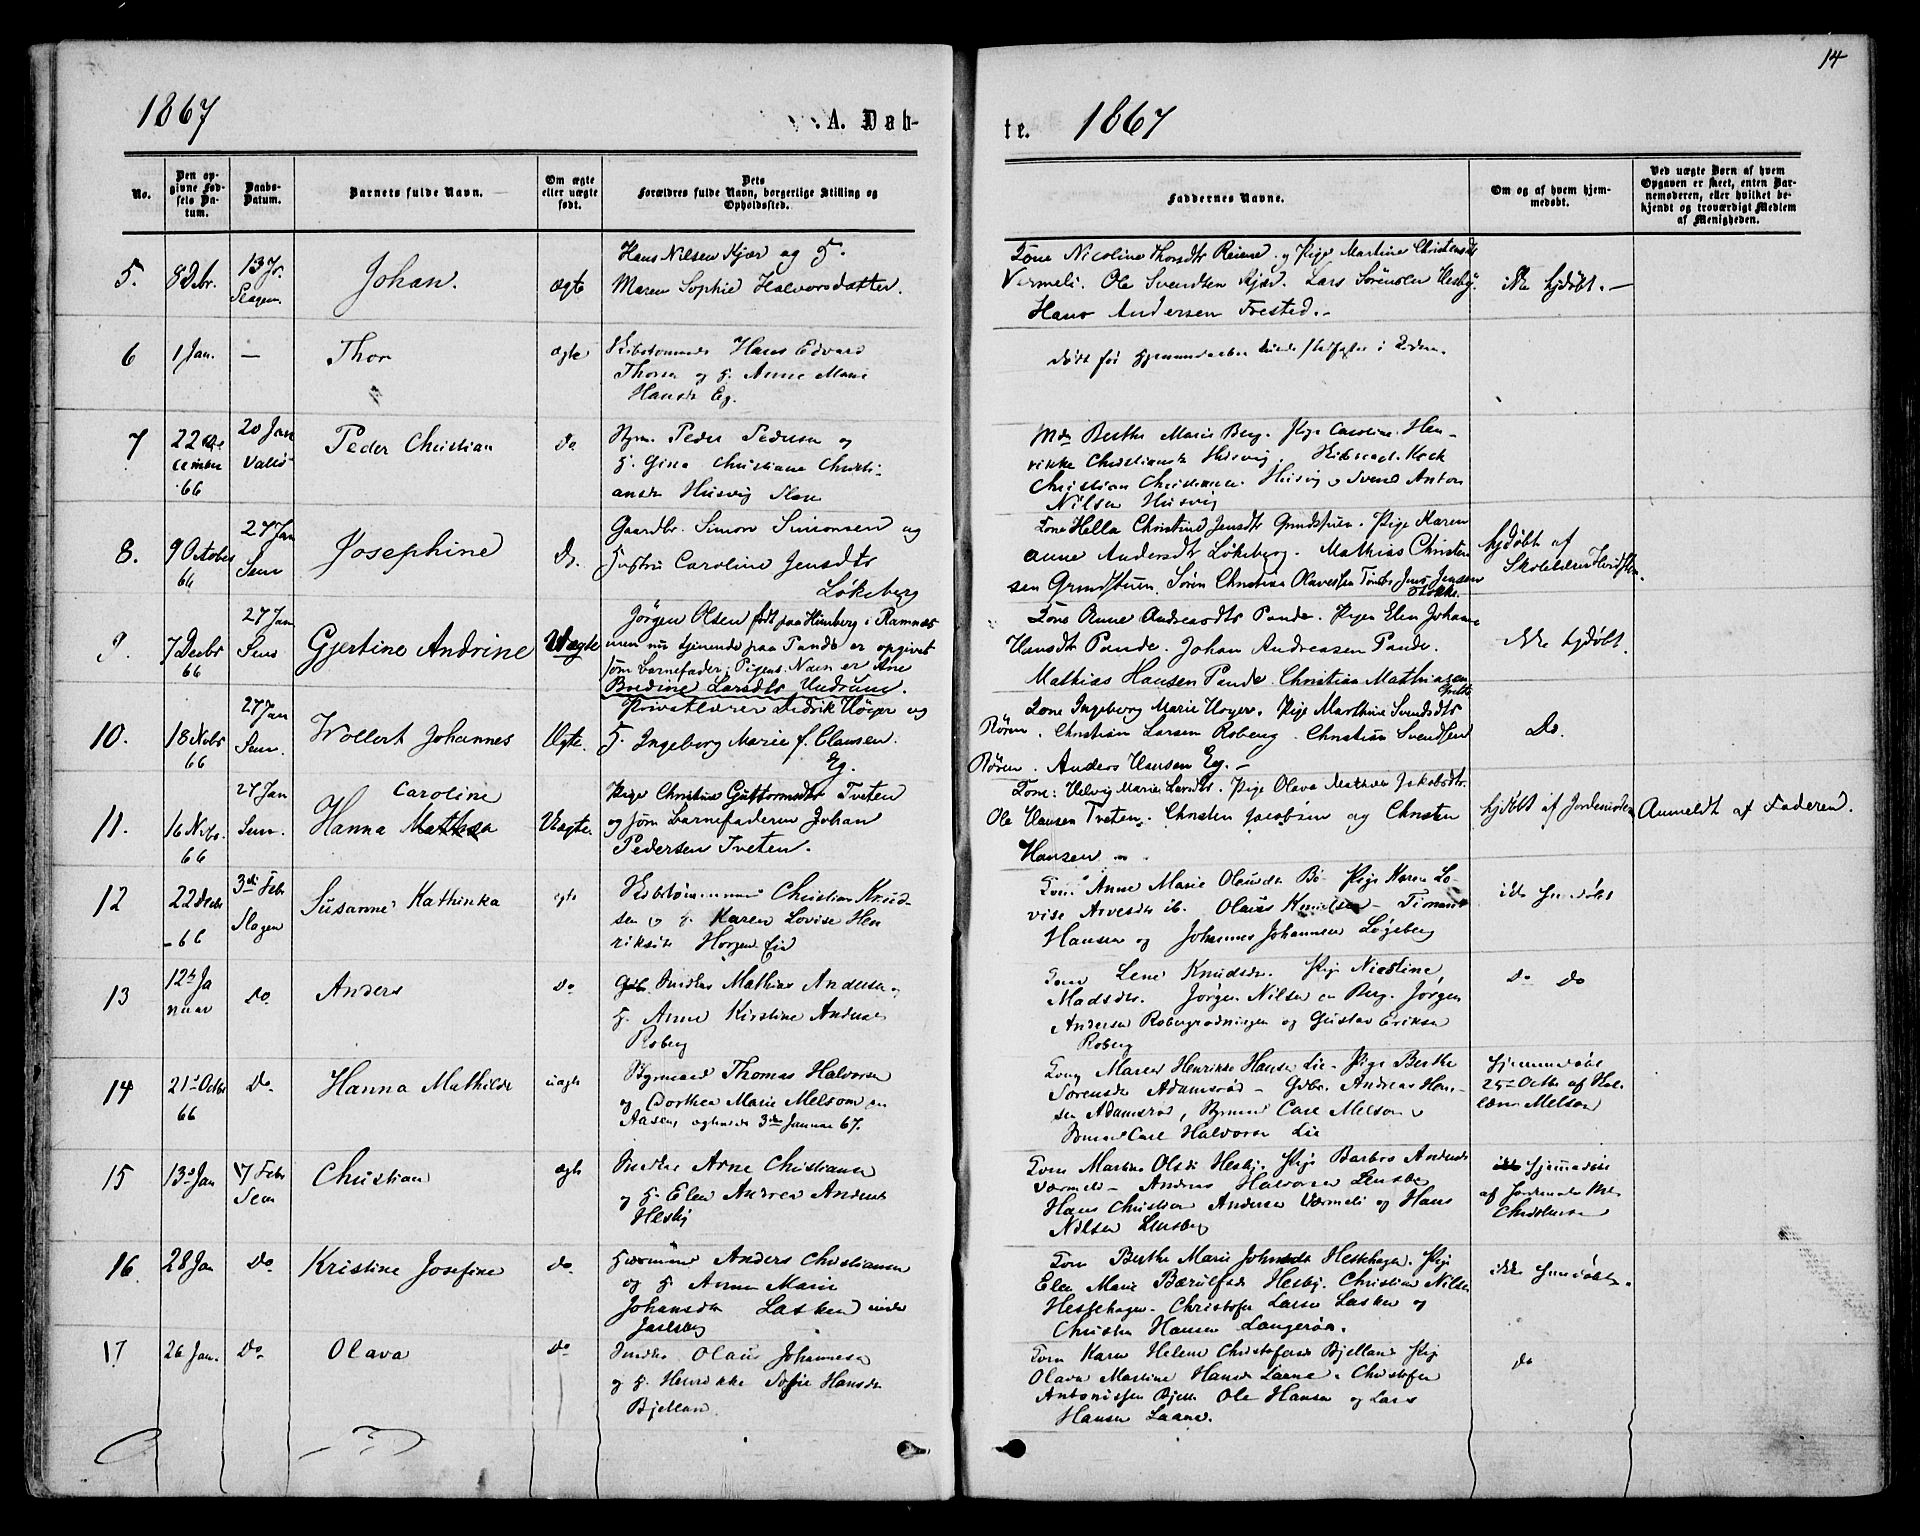 14
1867
A. Døb-
te.
1867
No.
Den op-
givne Fød-
sels Da-
tum.
Daabs-
Datum.
Barnets fulde Navn.
Om ægte
eller uægte
født.
Dets
Forældres fulde Navn, borgerlige Stilling og
Opholdssted.
Faddernes Navne.
Om og af hvem hjem-
medøbt.
Ved uægte Børn af hvem
Opgaven er skeet, enten Bar-
nemoderen, eller hvilket be-
kjendt og troværdigt Medlem
af Menigheden.
5. 8 Debr. 13 Jr.
Slagen.
Johan.
ægte
Hans Nilsen Kjær og H.
Maren Sophie Halvorsdatter.
Tone Nicoline Thorsdtr Reiene. og Pige Martine Christensdtr
Vermeli. Ole Svendsen Kjær. Lars Sørensen Hesby.
Hans Andersen Frested.
ikke hjdøbt.
6 1 Jan. —
Thor
ægte
Hans Edvard
Thorsen og H. Anne Marie
Hansdr Eg.
Død før
7 22 De
cember
66
20 Jan
Valø
Peder Christian
Do
Peder Pedersen og
H. Gina Christiane Christi-
ansdr Husvig Slen
Md Berthe Marie Berg. Pige Caroline Hen-
rikke Christiansdr Husvig. Kok
Christian Christiansen Husvig og Svend Anton
Nilsen Husvig
8. 9 October
66
27 Jan
Sem
Josephine
Do.
Gaardbr. Simon Simonsen og
Hustru Caroline Jensdtr
Løkeberg
Tone Hella Christine Jensdtr Grindstuen. Pige Karen
Anne Andersdtr Løkeberg. Mathias Christen
sen Grindstuen. Søren Christian Jens Jensen
hjdøbt af
Skolelærer
9. 7 Decbr
66
27 Jan
Sem
Gjertine Andrine
Uægte
Jørgen Olsen født paa Himberg i Ramnæs
men nu tjenende paa Pande er opgivet
som barnefader; Pigens Navn er Ane
Bredine Larsdtr Undrum.
Tone Anne Andreasdtr Pande. Pigen Elen Johan
Hansdtr Pande. Johan Andreasen Pande.
Mathias Hansen Pande. Christian Mathiasen
ikke hjdøbt.
10. 18 Nobr
66
27 Jan
Sem.
Wollert Johannes
Ægte.
Privatlærer Didrik Höyer og
H. Ingeborg Marie f. Clausen.
Eg.
Tone Ingeborg Marie Høyer. Pige Marthine Svendsdtr
Røren. Christian Larsen Roberg. Christian Svendsen
Røren. Anders Hansen Eg.
Do.
11. 16 Nvbr.
66
27 Jan
Sem.
Caroline
Hanna
Uægte.
Pige Christine Guttormsdtr Tveten
og som barnefaderen Johan
Pedersen Tveten.
Tone: Helvig Marie Larsdtr. Pige Olava Mathilde Jakobsdtr.
Ole Hansen Tveten. Christen Jacobsen og Christen
Hansen
hjdøbt af Jordemoder
Anmeldt af Faderen.
12 22 Decbr
- 66
3di Feb
Slagen
Susanne Kathinka
ægte
Christian Knud-
sen og H. Karen Lovise Hen
riksdtr Horgen Eie
Tone Anne Marie Olausdtr Bø Pige Karen Lo-
vise Arvesdtr ib. Olaus Knudsen
Hansen og Johannes Johannesen Løgeberg
ikke hjemdøbt
13 12te Ja
nuar
Do
Anders
Do
Mathias Andersen
H. Anne Kirstine Anders
Roberg
Tone Lene Knudsdr. Pige Nicoline
Madsdtr. Jørgen Nilsen Berg. Jørgen
Andersen Robergrødningen og Gustav Eriksen
Roberg
Do Do
14 21de Octbr
66
Do
Hanna Mathilde
uægte
Bymand Thomas Halvorsen
og Dorthea Marie Melsom
Aasen, 3die Januar 67.
Maren Henrikke Hansen Lie - Pige Berthe
Sørensdtr Adamsrød - Gdbr. Andreas Han-
sen Adamsrød, Carl Melsom og
Carl Halvorsen Lie
hjemmedøbt
25de Octbr af
Melsom
15 13de Jan
7 Febr
Sem
Christian
ægte
Inders Arne Christiansen
og H. Elen Andrea Andersdtr
Hesby
Tone Martine Olsdr Hesby. Pige Barbro Andersdr
Værmeli - Anders Halvorsen Lensberg
Hans Christian Andersen Værmeli og Hans
Nilsen Lensberg
hjemmedøbt
af Jordemoder
16. 28 Jan
Do
Kristine Josefine
Do
Husmand Anders Christiansen
og H. Anne Marie
Johansdtr Lasken under
Jarlsberg
Tone Berthe Marie Johnsdr Hestehagen. Pige
Elen Marie Hesby. Christian Nilsen
Hestehagen. Christofer Larsen Lasken og
Christen Hansen Langerøa.
ikke hjemdøbt.
17 26 Jan.
Do
Olava
Do
Inders Olaus Johannesen
og H. Henrikke Sofie Hansdr
Bjelland.
Tone Karen Helene Christofersdr Bjelland Pige
Olava Martine Hansdr Laane. Christofer
Antonissen Bjell Ole Hansen og Lars
Hansen Laane.
do